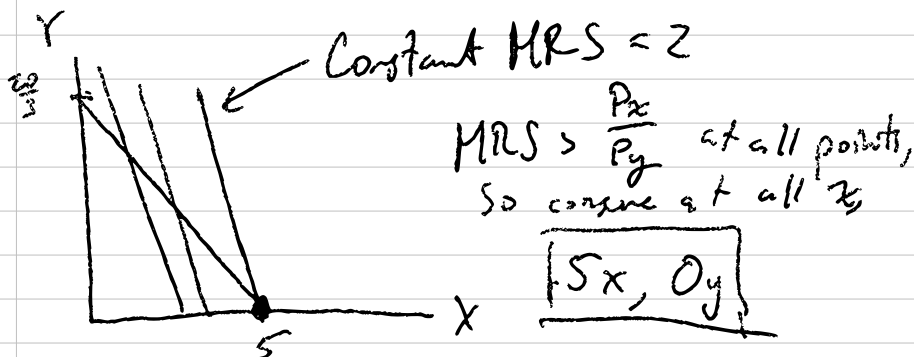 Y
20/3
Constant MRS = 2
MRS > Px/Py at all points,
so consume at all x,
5x, 0y
X
5